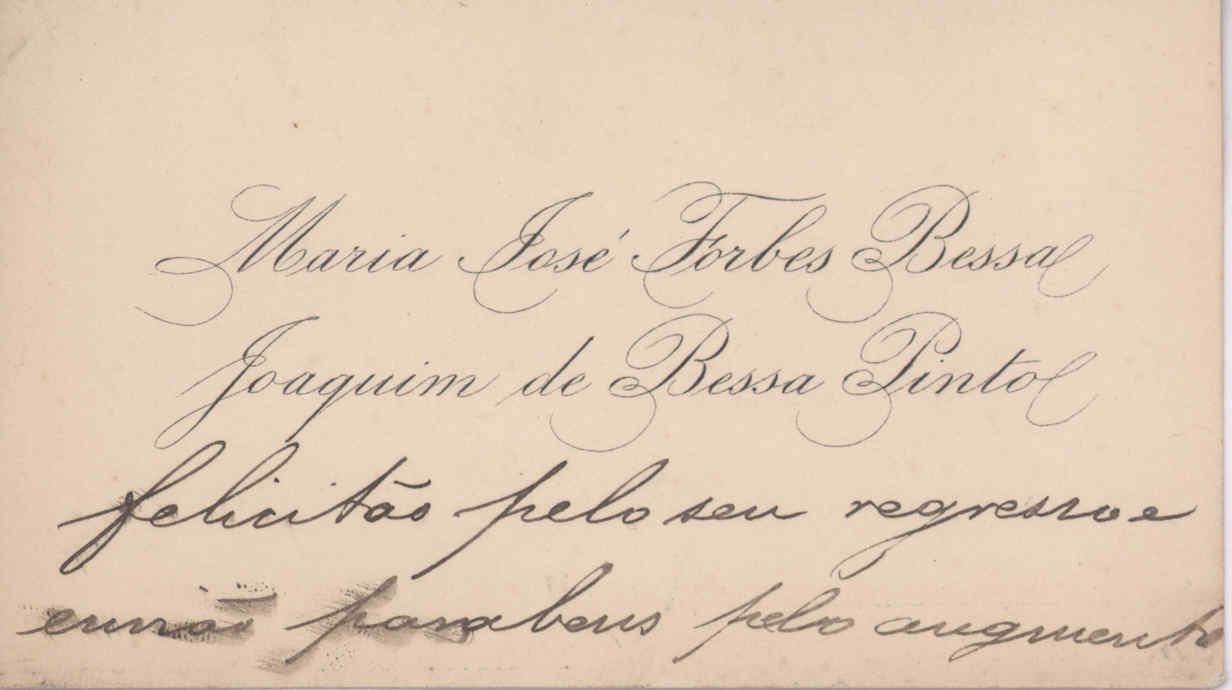 Maria José Forbes Bessa
Joaquim de Bessa Pinto
felicitão pelo seu regresso e
envião parabens pelo augmento